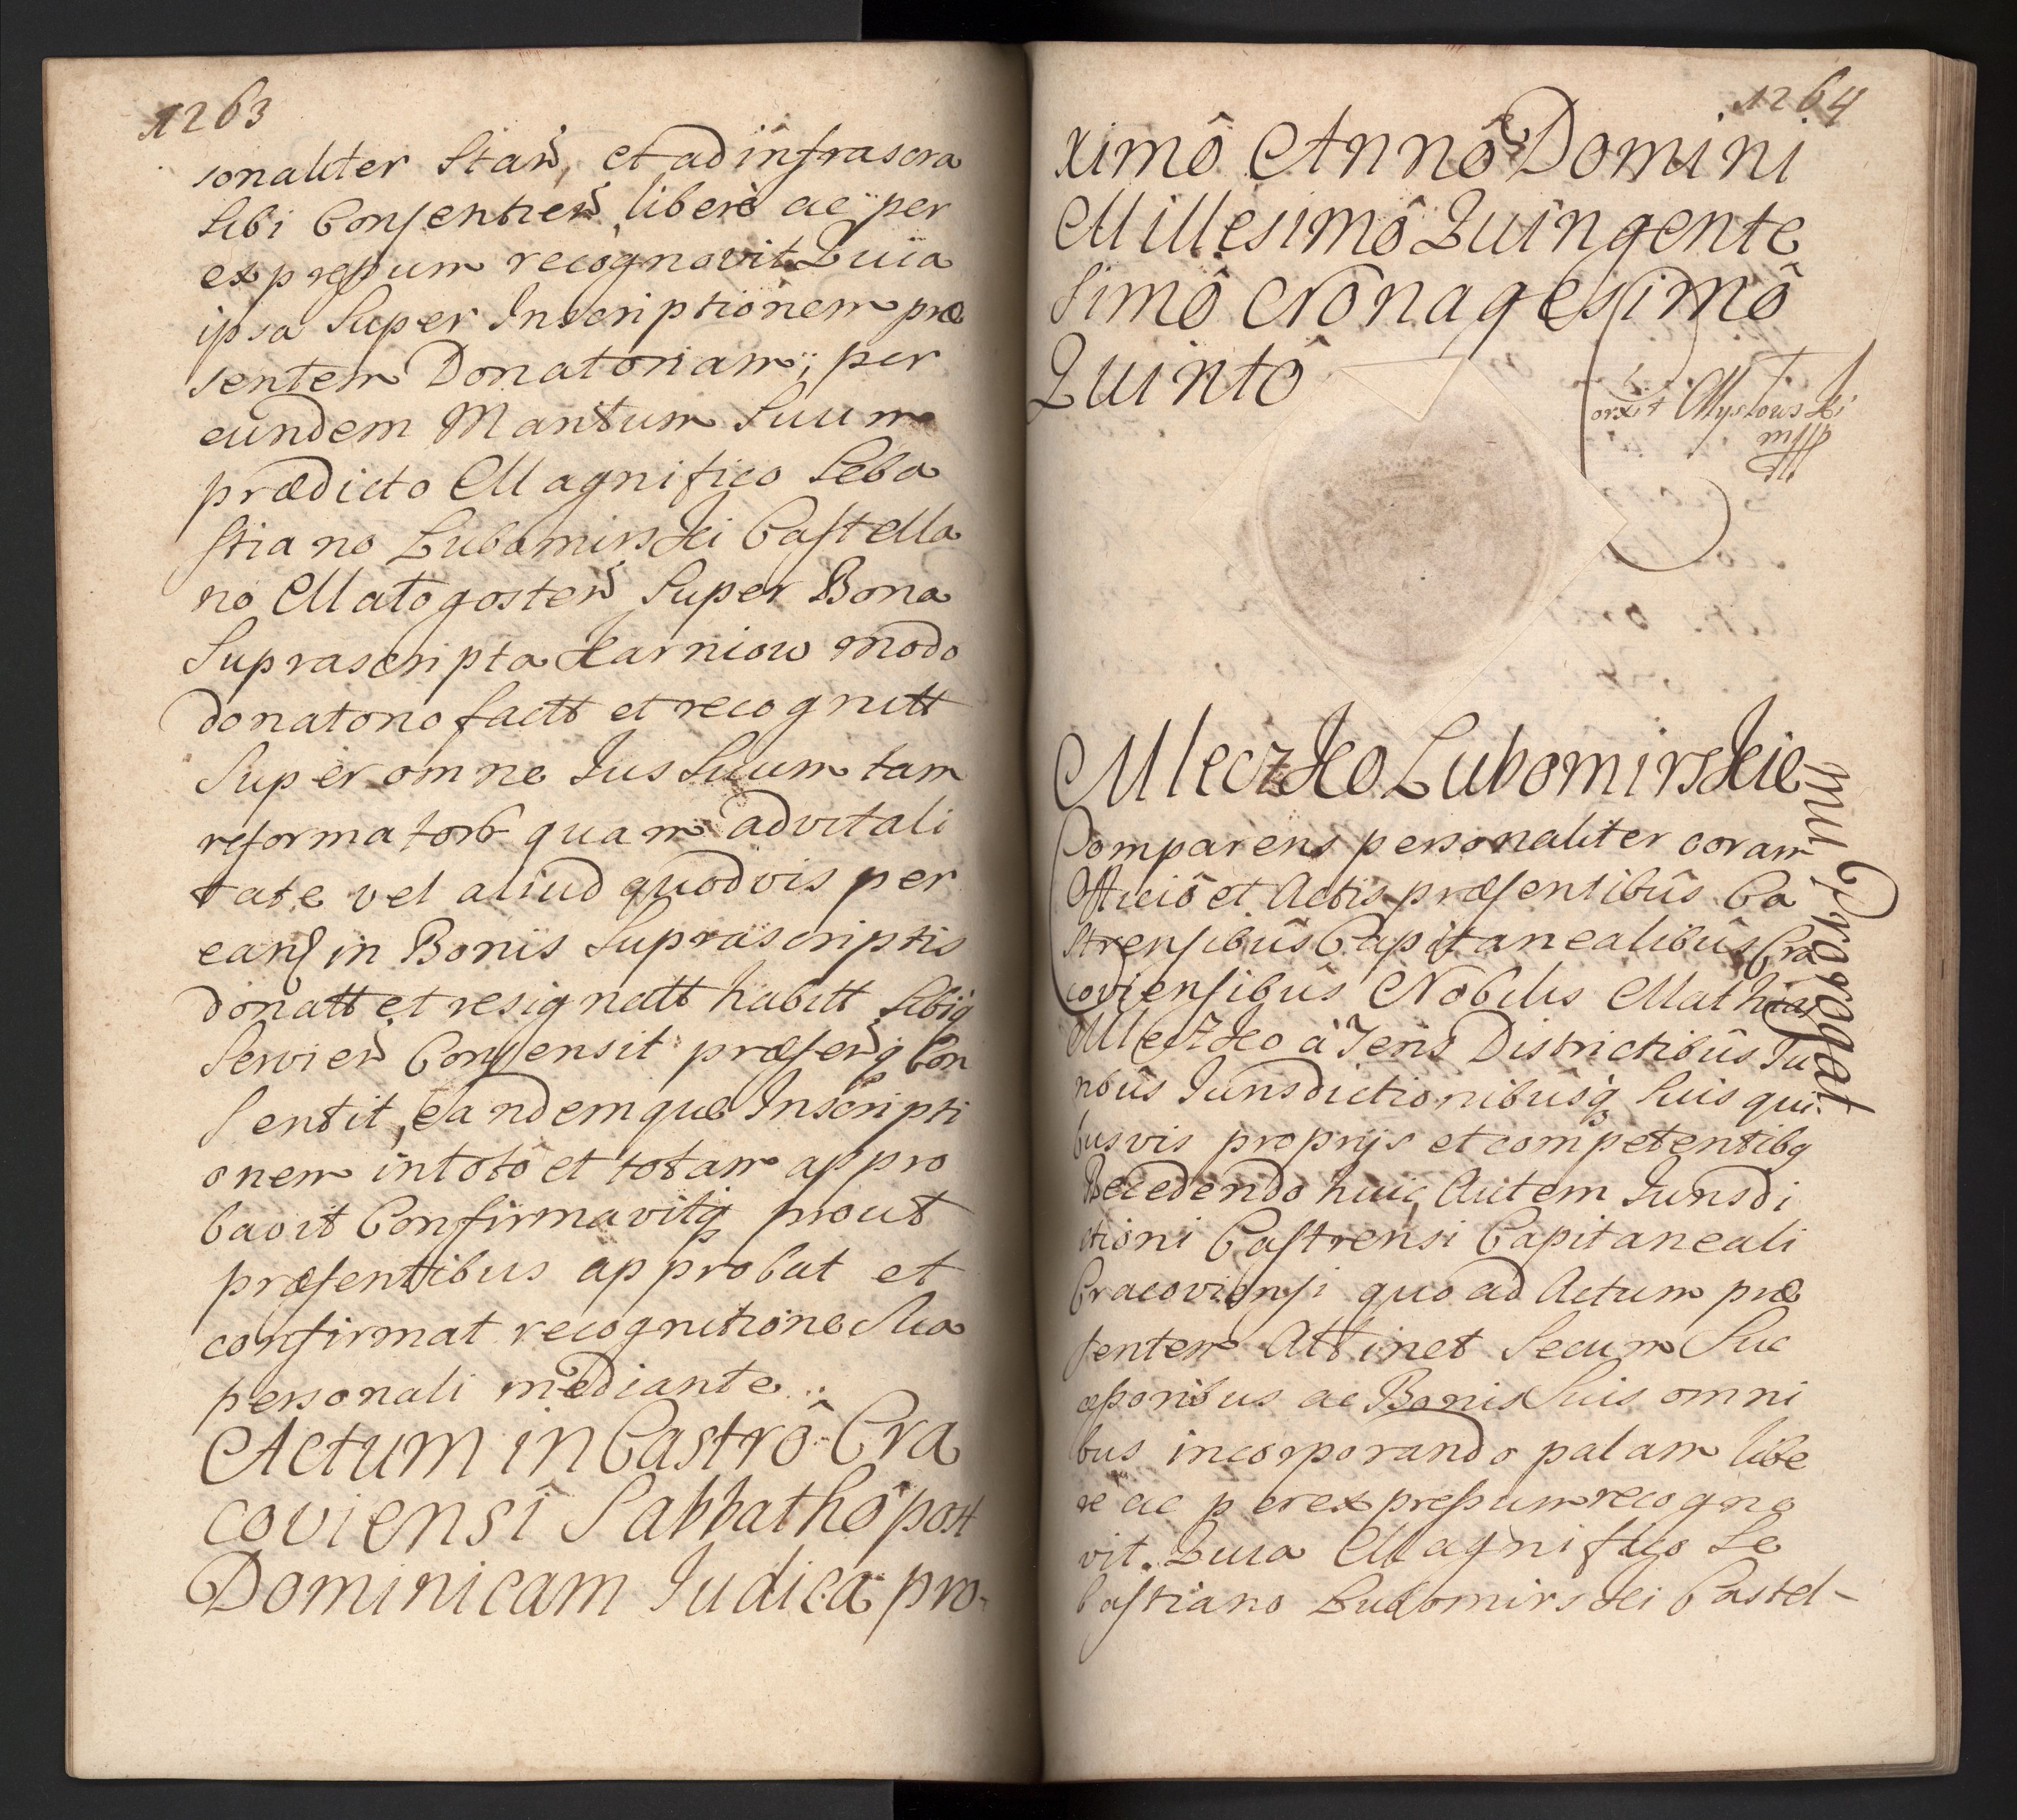 1263
sonaliter Stan, et ad infrascra
Sibi Consentien, libere ac per
expressum recognovit Quia
ipsa Super Inscriptionem præ
sentem Donatoriam, per
eundem Maritum Suum
prædicto Magnifico Seba
stiano Lubomirski Castella
no Małogosten Super Bona
Suprascripta Karniow modo
donatorio factt et recognitt
Super omne Jus Suum tam
reformatorb quam advitali
tate vel aliud quodvis per
eand in Bonis Suprascriptis
donatt et resignatt habitt Sibiq
Servien Consensit præsenq Con
sentit, eandemque Inscripti
onem in totô et totam appro
bavit Confirmavitq prout
præsentibus approbat et
confirmat recognitione Sua
personali mediante.
Actum in Castrô Cra
coviensi Sabbathô post
Dominicam Judica pro-
1264
ximô Annô Domini
Millesimô Quingente
simô Nonagesimô
Quintô
Mleczko Lubomirskie
mu Prorogat
Comparens personaliter coram
Officiô et Actis præsentibûs Ca
strensibûs Capitanealibûs Cra
coviensibûs Nobilis Mathias
Mleczko à Teris Districtibûs Ju
ribûs Jurisdictionibûsq Suis qui
busvis proprijs et competentibq
Recedendo huic Autem Jurisdi
ctioni Castrensi Capitaneali
Cracoviensi quo ad Actum præ
sentem Attinet Secum Suc
cessoribus ac Bonis Suis omni
bus incorporando palam libe
re ac per expressum recogno
vit. Quia Magnifico Se
bastiano Lubomirski Castel-